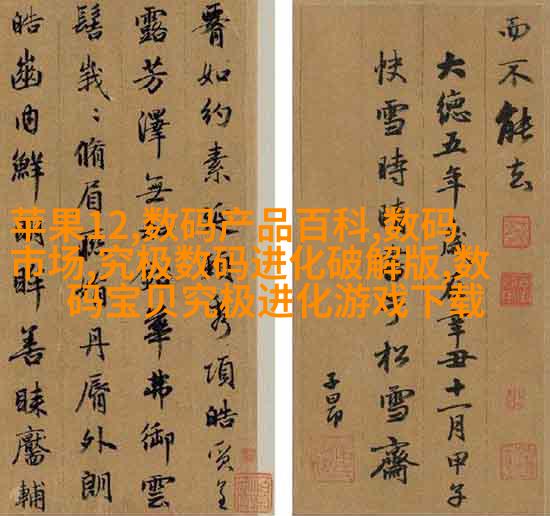 苹果12,数码产品百科,数码
市场,究极数码进化破解版,数
码宝贝究极进化游戏下载
如約素延秀項皓質呈
露芳澤無華弗御雲
髻峩〻脩眉聯娟丹脣外朗
皓齒内鮮明眸善睞靨輔
而不能去
大德五年歲在辛丑十一月甲子
快雪時晴于松雪齋
子昂